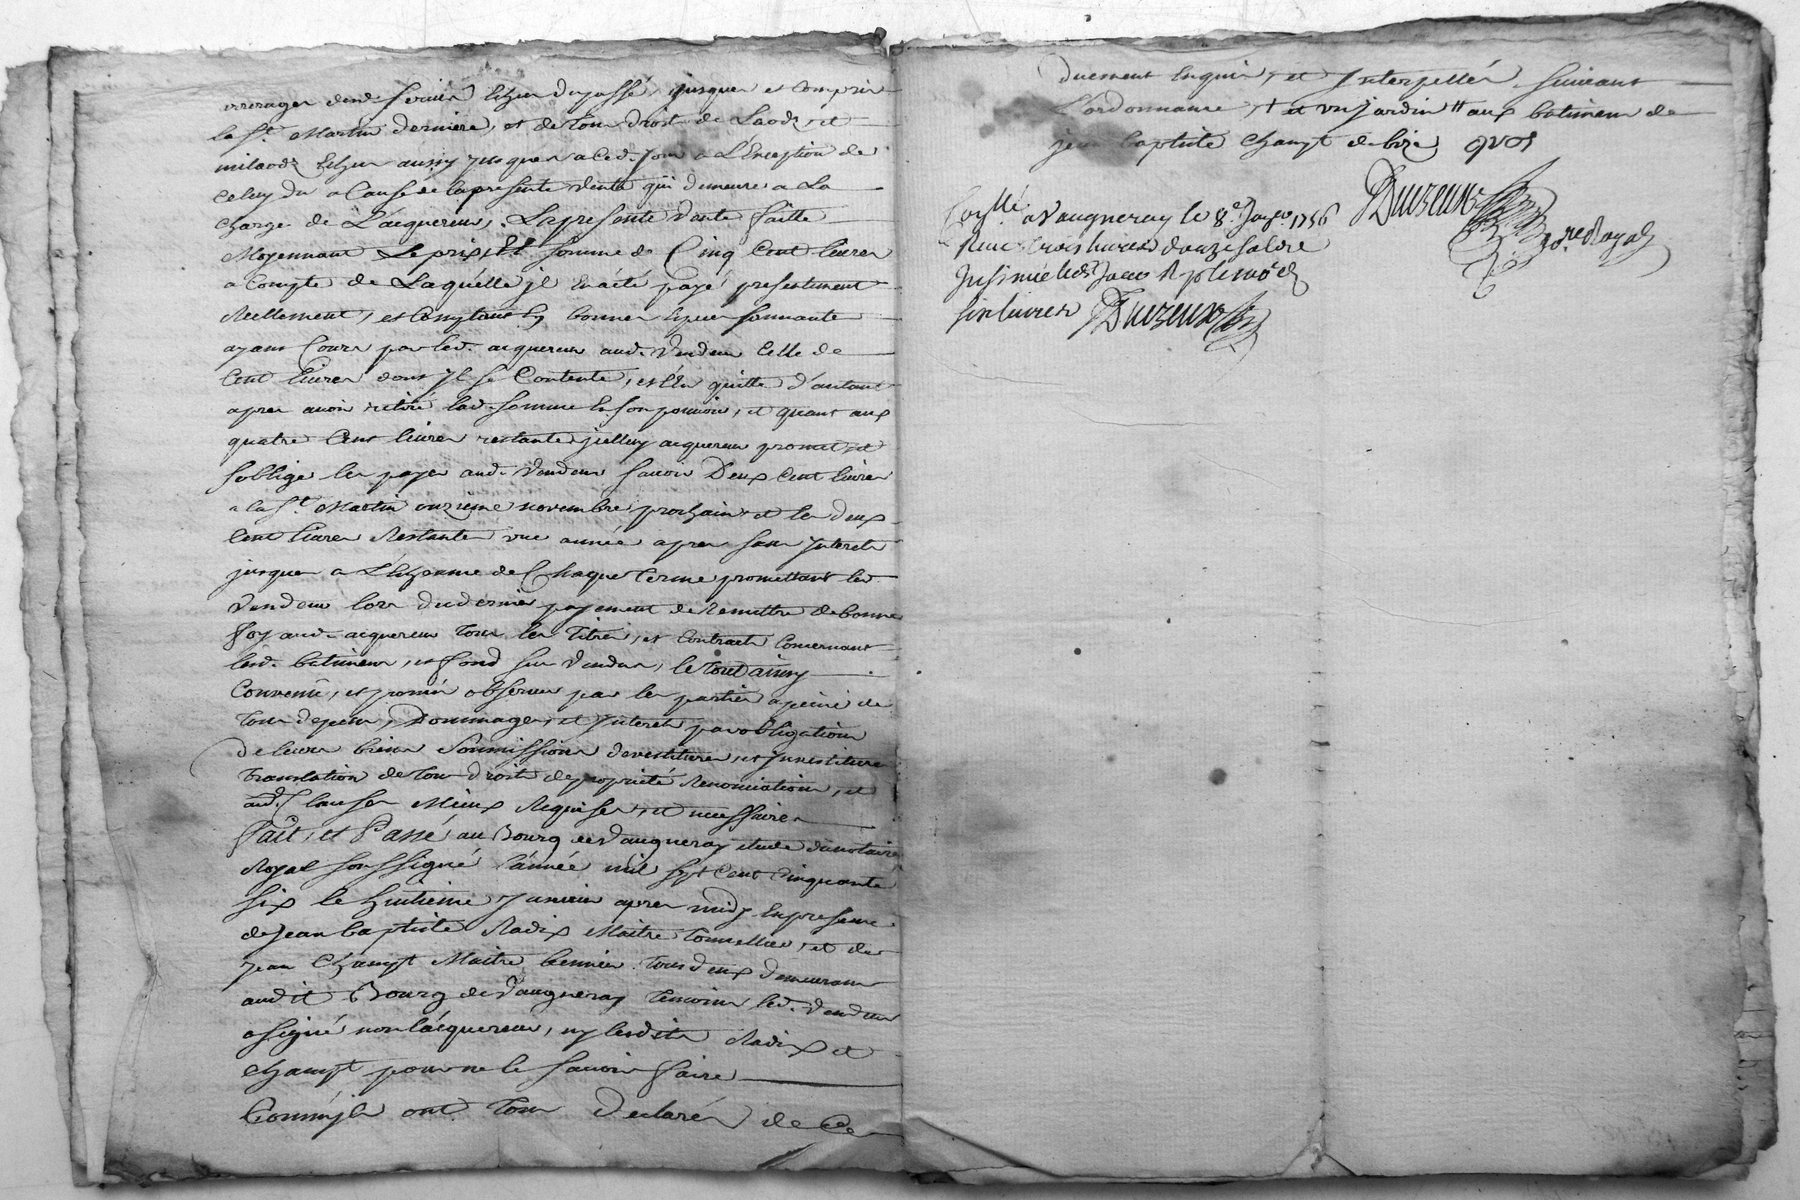 arrerages dud. Servis Echeu du passé, jusques et compris
la St. Martin derniere, et de tous droits de Laods et
milaods Echeu aussy jusques a ced. jour a L'Exception de
celuy du a Cause de la presente Vente qui demeure a La
charge de L'acquereur, La presente Vente faitte
Moyennant Le prix Et Somme de Cinq Cent livres
a Compte de Laquelle jl En a été payé presentement
Reellement, et Comptant En bonnes Especes Sonnante
ayant Cours par led. acquereur aud. Vendeur Celle de
Cent livres dont jl Se Contente, et l'En quitte d'autant
apres avoir retiré lad. Somme En Son pouvoir, et quant aux
quatre Cent livres restantes jcelluy acquereur promet et
S'oblige les payer aud. Vendeur Savoir Deux Cent livres
a la St. Martin onzieme novembre prochain et les deux
Cent livres Restantes une année apres Sans Interets
jusques a L'Echeance de Chaque Terme promettant led.
Vendeur lors du dernier payement de Remettre de bonne
foy aud. acquereur tous les Titres, et Contracts Concernant
lesd. batiments, et fond Sus Vendus, le tout ainsy
Convenu, et promis observer par les parties a peine de
tous depens, Dommages, et Interets par obligation
de leurs biens Soumissions devestiture, et Investiture
translation de tous droits de proprieté Renonciations, et
aud. Clauses Mieux Requises, et necessaires
Fait, et Passé au Bourg de Vaugneray etude du notaire
Royal Soussigné l'année mil Sept Cent Cinquante
Six le huitieme Janvier apres midy En presence
de Jean baptiste Radix Maitre tonnellier, et de
Jean Champt Maitre bennier tous deux demeurant
audit Bourg de Vaugneray temoins led. Vendeur
a Signé non l'acquereur, ny lesdits Radix et
Champt pour ne le Savoir faire
Comm'jls ont tous Declarés de Ce
Duement Enquis, et Interpellés Suivant
L'ordonnance, + et un jardin # aux batiments de
jean baptiste champt
Duvzeux
Royal
Con^llé a Vaugneray le 8e Janvr. 1756
Receu trois livres douze sols
Insinué
Six livres Duvzeux